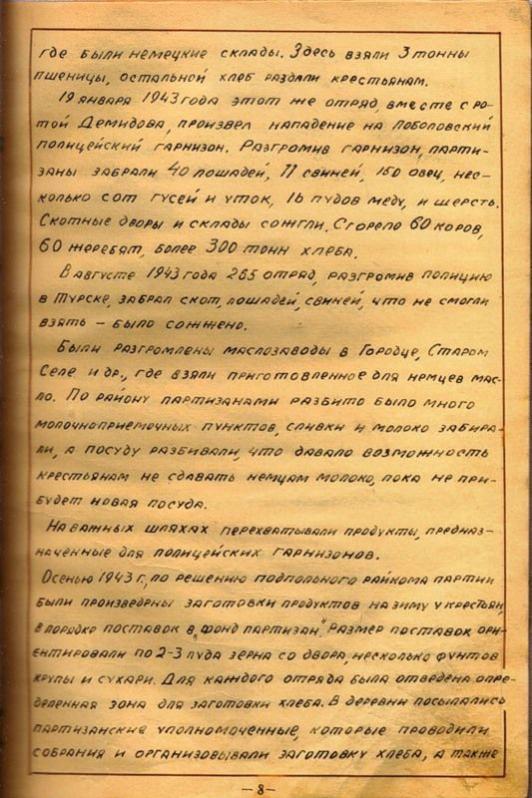 где были немецкие склады. Здесь взяли 3 тонны
пшеницы, остальной хлеб раздали крестьянам.
19 января 1943 года этот же отряд, вместе с ро-
той Демидова, произвел нападение на Поболовский
полицейский гарнизон. Разгромив гарнизон, парти-
заны забрали 40 лошадей, 11 свиней, 150 овец, нес-
колько сот гусей и уток, 16 пудов меду, и шерсть.
Скотные дворы и склады сожгли. Сгорело 60 коров,
60 жеребят, более 300 тонн хлеба.
В августе 1943 года 265 отряд, разгромив полицию
в Турске, забрал скот, лошадей, свиней, что не смогли
взять – было сожжено.
Были разгромлены маслозаводы в Городце, Старом
Селе и др., где взяли приготовленное для немцев мас-
ло. По району партизанами разбито было много
молочноприемочных пунктов, сливки и молоко забира-
ли, а посуду разбивали, что давало возможность
крестьянам не сдавать немцам молоко, пока не при-
будет новая посуда.
На важных шляхах перехватывали продукты, предназ-
наченные для полицейских гарнизонов.
Осенью 1943 г., по решению подпольного райкома партии
были произведены заготовки продуктов на зиму у крестьян,
в порядке поставок в „фонд партизан." Размер поставок ори-
ентировали по 2-3 пуда зерна со двора, несколько фунтов
крупы и сухари. Для каждого отряда была отведена опре-
деленная зона для заготовки хлеба. В деревни посылались
партизанские уполномоченные, которые проводили
собрания и организовывали заготовку хлеба, а также
– 8 –